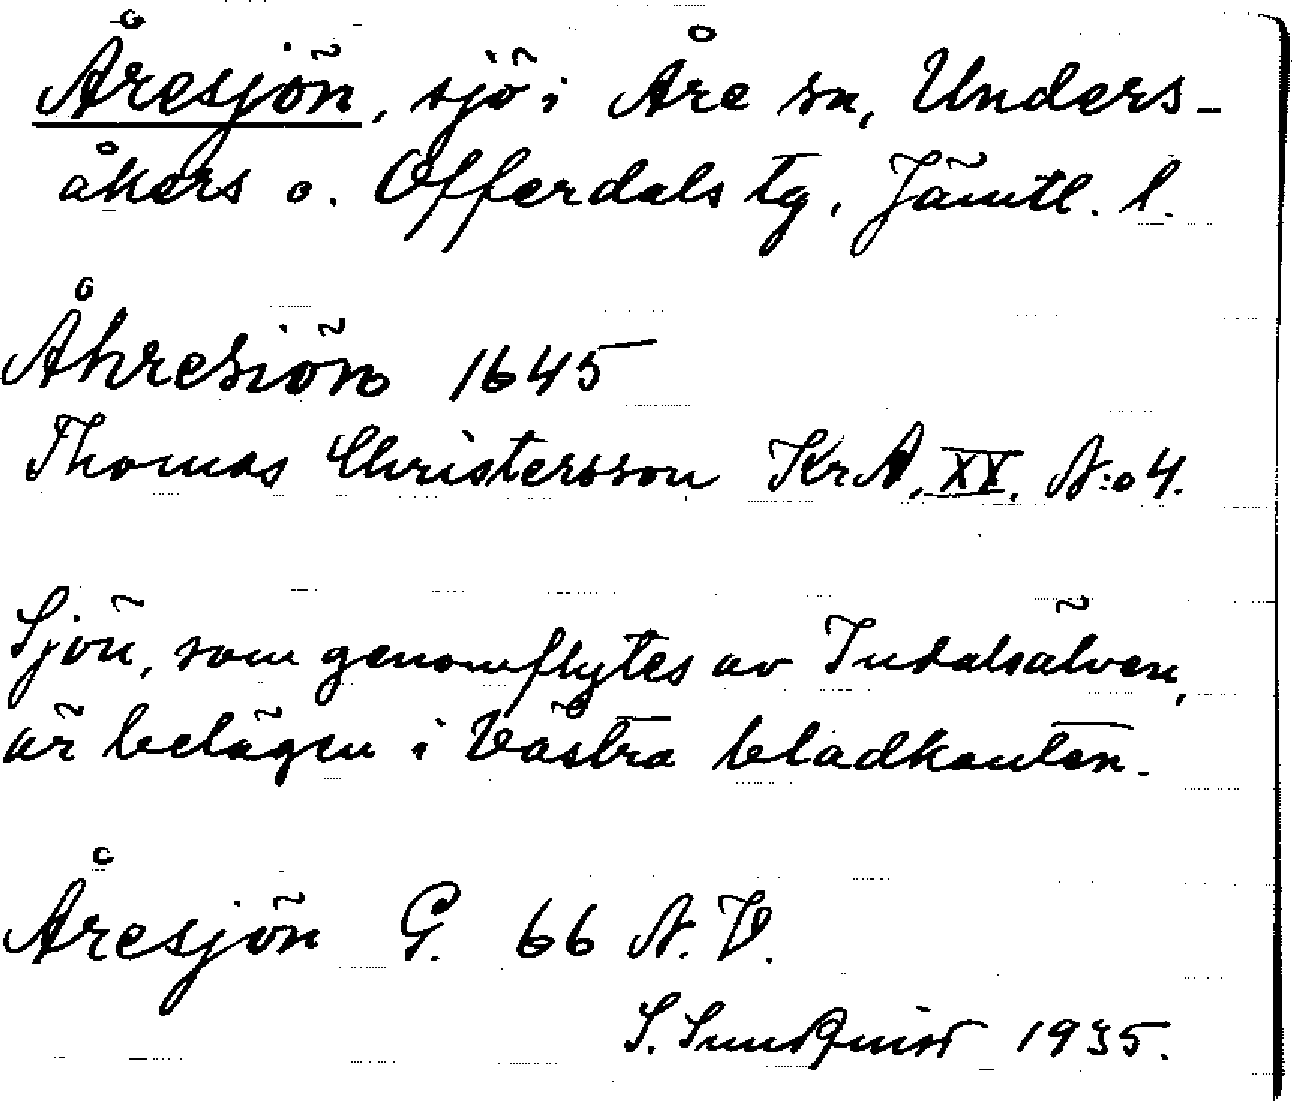 Åresjön, sjö i Åre sn, Unders-
åkers o. Offerdals tg, Jämtl. l.
Åhresiön 1645
Thomas Christersson KrA, XX, N:o 4.
Sjön, som genomflytes av Indalsälven,
är belägen i västra bladkanten.
Åresjön G. 66 N.V.
S. Sundquist 1935.